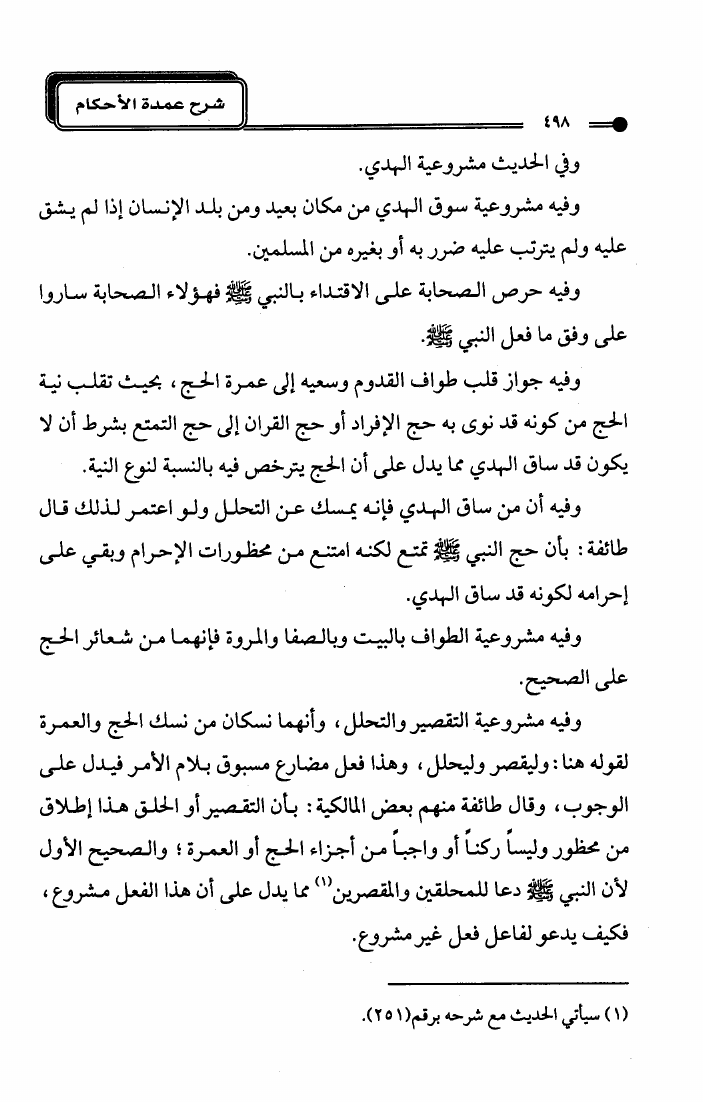 شرح عمدة الأحكام
٤٩٨
وفي الحديث مشروعية الهدي.
وفيه مشروعية سوق الهدي من مكان بعيد ومن بلد الإنسان إذا لم يشق
عليه ولم يترتب عليه ضرر به أو بغيره من المسلمين.
وفيه حرص الصحابة على الاقتداء بالنبي ﷺ فهؤلاء الصحابة ساروا
على وفق ما فعل النبي ﷺ.
وفيه جواز قلب طواف القدوم وسعيه إلى عمرة الحج، بحيث تقلب نية
الحج من كونه قد نوى به حج الإفراد أو حج القران إلى حج التمتع بشرط أن لا
يكون قد ساق الهدي مما يدل على أن الحج يترخص فيه بالنسبة لنوع النية.
وفيه أن من ساق الهدي فإنه يمسك عن التحلل ولو اعتمر لذلك قال
طائفة: بأن حج النبي ﷺ تمتع لكنه امتنع من محظورات الإحرام وبقي على
إحرامه لكونه قد ساق الهدي.
وفيه مشروعية الطواف بالبيت وبالصفا والمروة فإنهما من شعائر الحج
على الصحيح.
وفيه مشروعية التقصير والتحلل، وأنهما نسكان من نسك الحج والعمرة
لقوله هنا: وليقصر وليحلل، وهذا فعل مضارع مسبوق بلام الأمر فيدل على
الوجوب، وقال طائفة منهم بعض المالكية: بأن التقصير أو الحلق هذا إطلاق
من محظور وليساً ركناً أو واجباً من أجزاء الحج أو العمرة؛ والصحيح الأول
لأن النبي ﷺ دعا للمحلقين والمقصرين(١) مما يدل على أن هذا الفعل مشروع،
فكيف يدعو لفاعل فعل غير مشروع.
(١) سيأتي الحديث مع شرحه برقم(٢٥١).